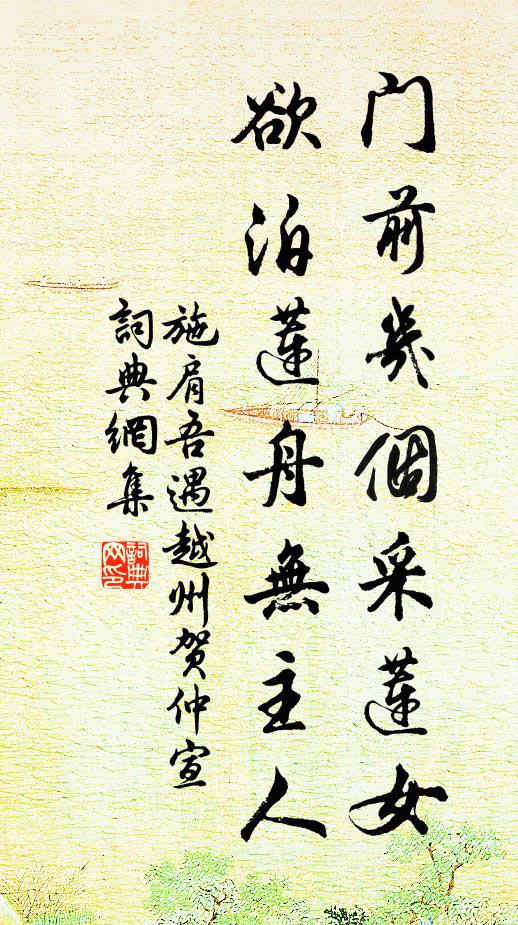 门前幾個采蓮女
欲泊蓮舟無主人
施肩吾遇越州贺仲宣
詞典網集
詞典网印